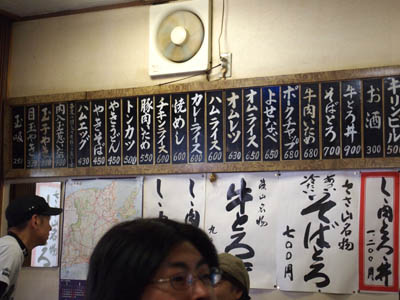 キリンビール 500
お酒
牛どろ丼 900
そばとろ 700
牛肉いため 680
ポークチャップ 680
よせなべ 650
オムライス 650
オムレツ 630
ハムライス 600
カレーライス 600
焼めし 600
チキンライス 600
豚肉いため 550
トンカツ 500
やきうどん 450
やきそば 450
ハムエッグ 450
玉子やき
目玉やき 350
しし肉とろ丼
一二〇〇円
ささ山名物
そばとろ
七〇〇円
篠山名物
牛とろ
しし肉